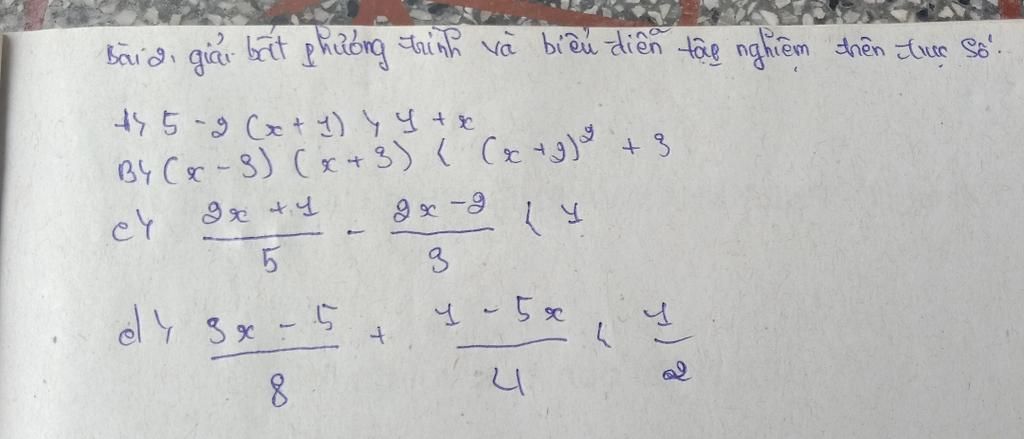 Bài 2. giải bất phương trình và biểu diễn tập nghiệm trên trục số.
A> 5 - 2 (x + 1) > 1 + x
B> (x - 3) (x + 3) < (x + 2)² + 3
c> (2x + 1)/5 - (2x - 2)/3 < 1
d> (3x - 5)/8 + (1 - 5x)/4 < 1/2